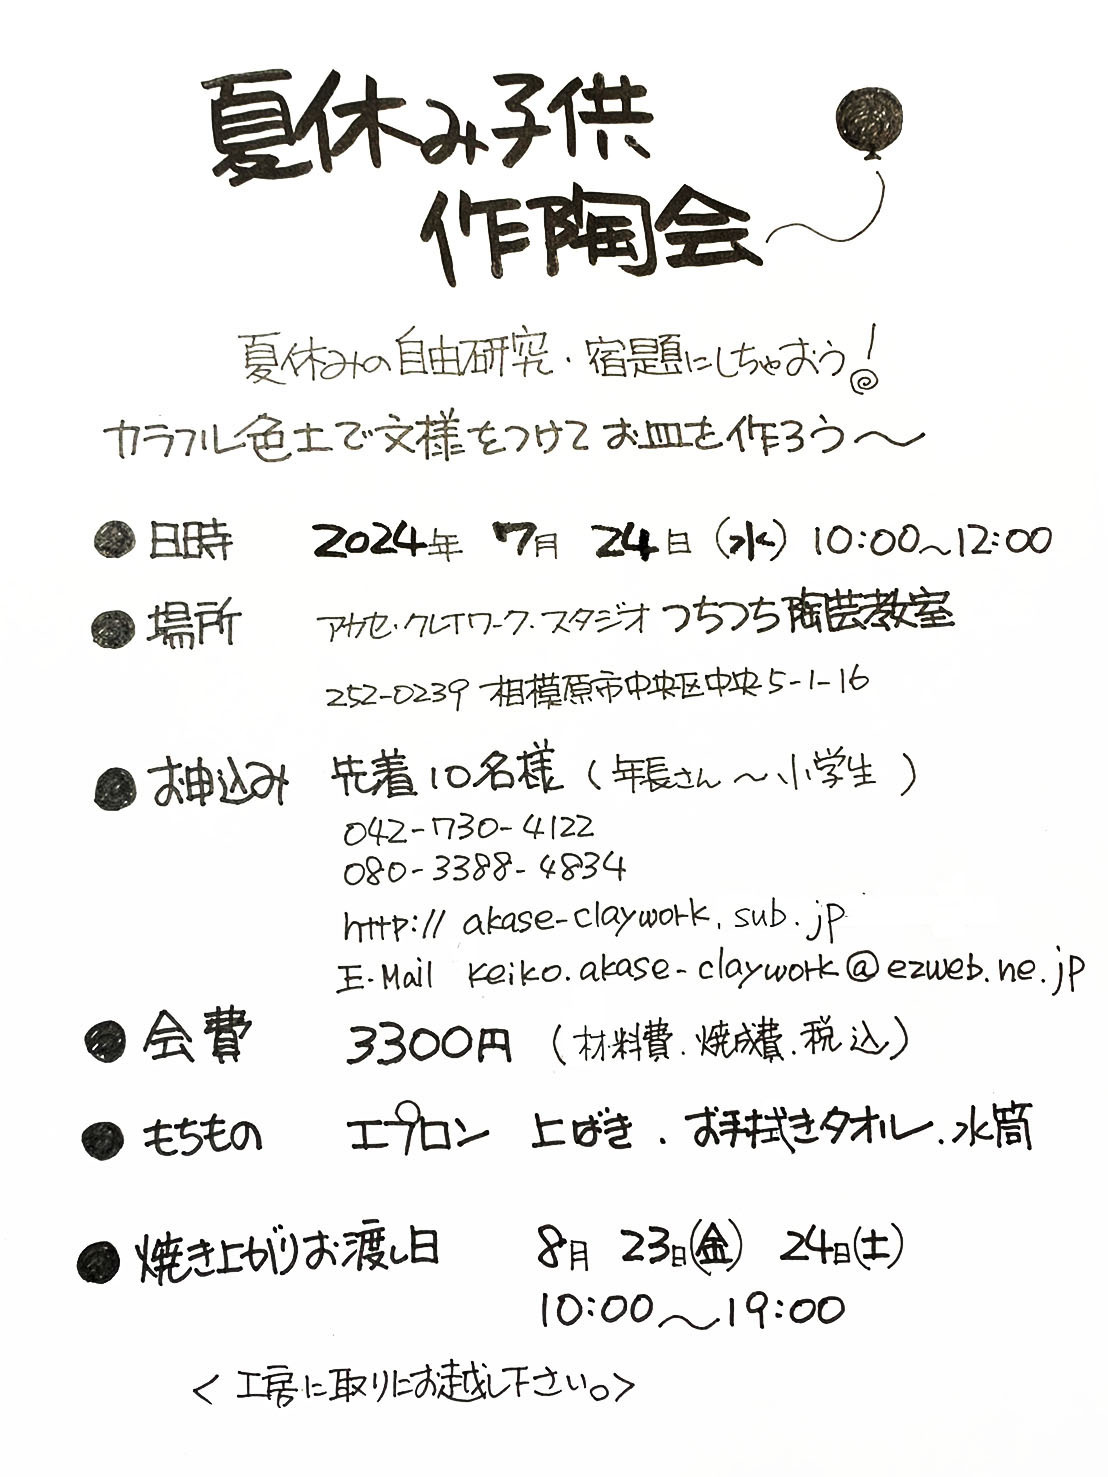 夏休み子供
作陶会
夏休みの自由研究・宿題にしちゃおう!
カラフル色土で文様をつけてお皿を作ろう〜
● 日時 2024年 7月 24日(水) 10:00〜12:00
● 場所 アカセ・クレイワーク・スタジオ つちつち陶芸教室
252-0239 相模原市中央区中央5-1-16
● お申込み 先着10名様(年長さん〜小学生)
042-730-4122
080-3388-4834
http://akase-claywork.sub.jp
E-Mail keiko.akase-claywork@ezweb.ne.jp
● 会費 3300円(材料費・焼成費・税込)
● もちもの エプロン 上ばき・お手拭きタオル・水筒
● 焼き上がりお渡し日 8月 23日(金) 24日(土)
10:00〜19:00
<工房に取りにお越し下さい。>